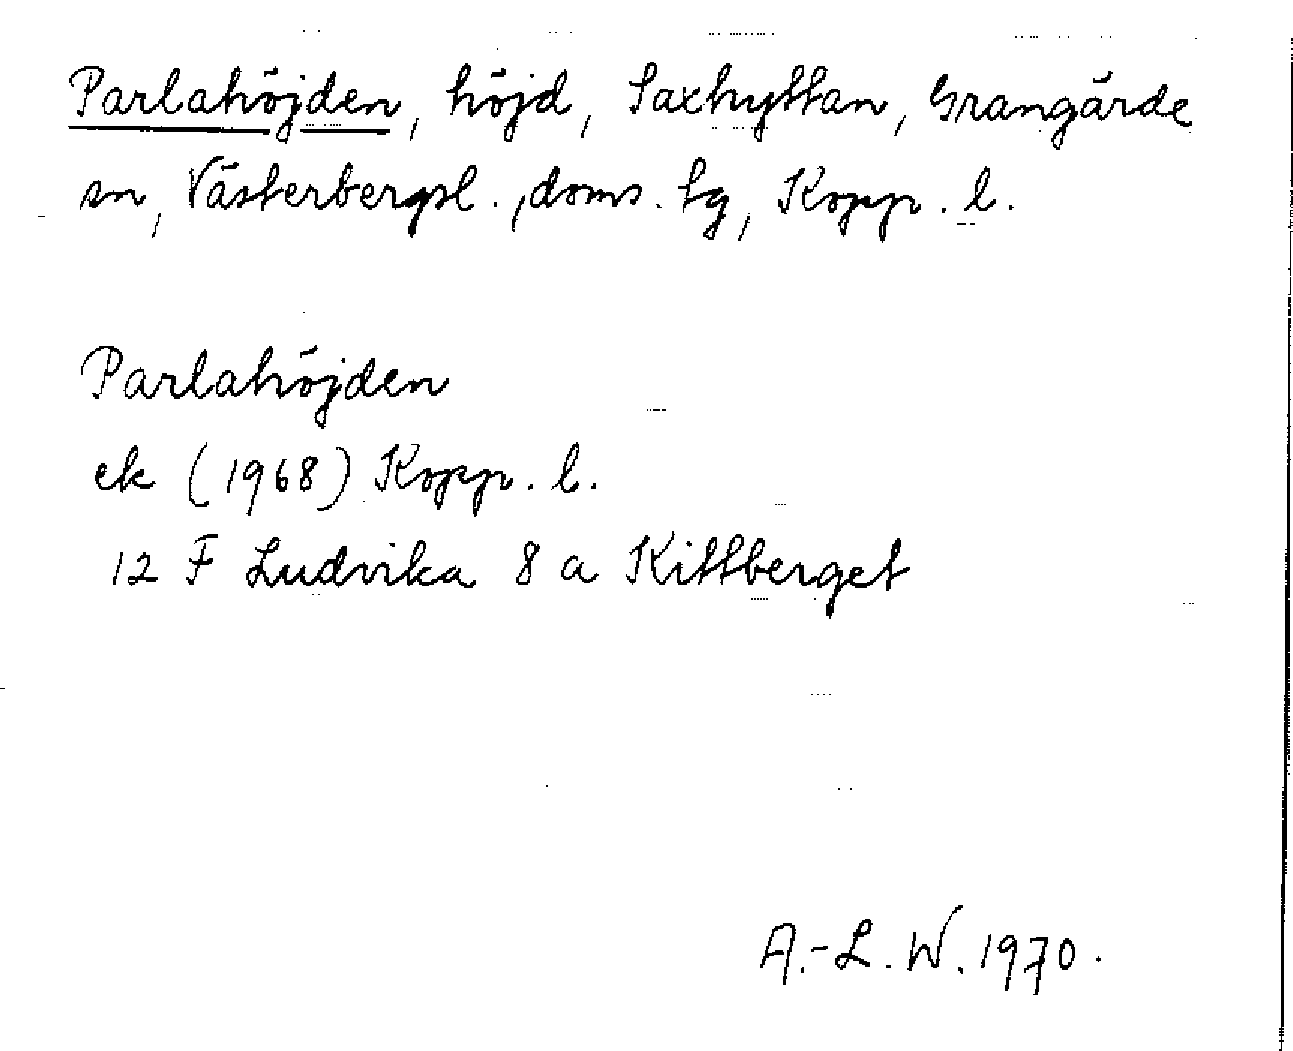 Parlahöjden, höjd, Saxhyttan, Grangärde
sn, Västerbergsl., doms. tg, Kopp. l.
Parlahöjden
ek (1968) Kopp. l.
12 F Ludvika 8 a Kittberget
A.-L. W. 1970.